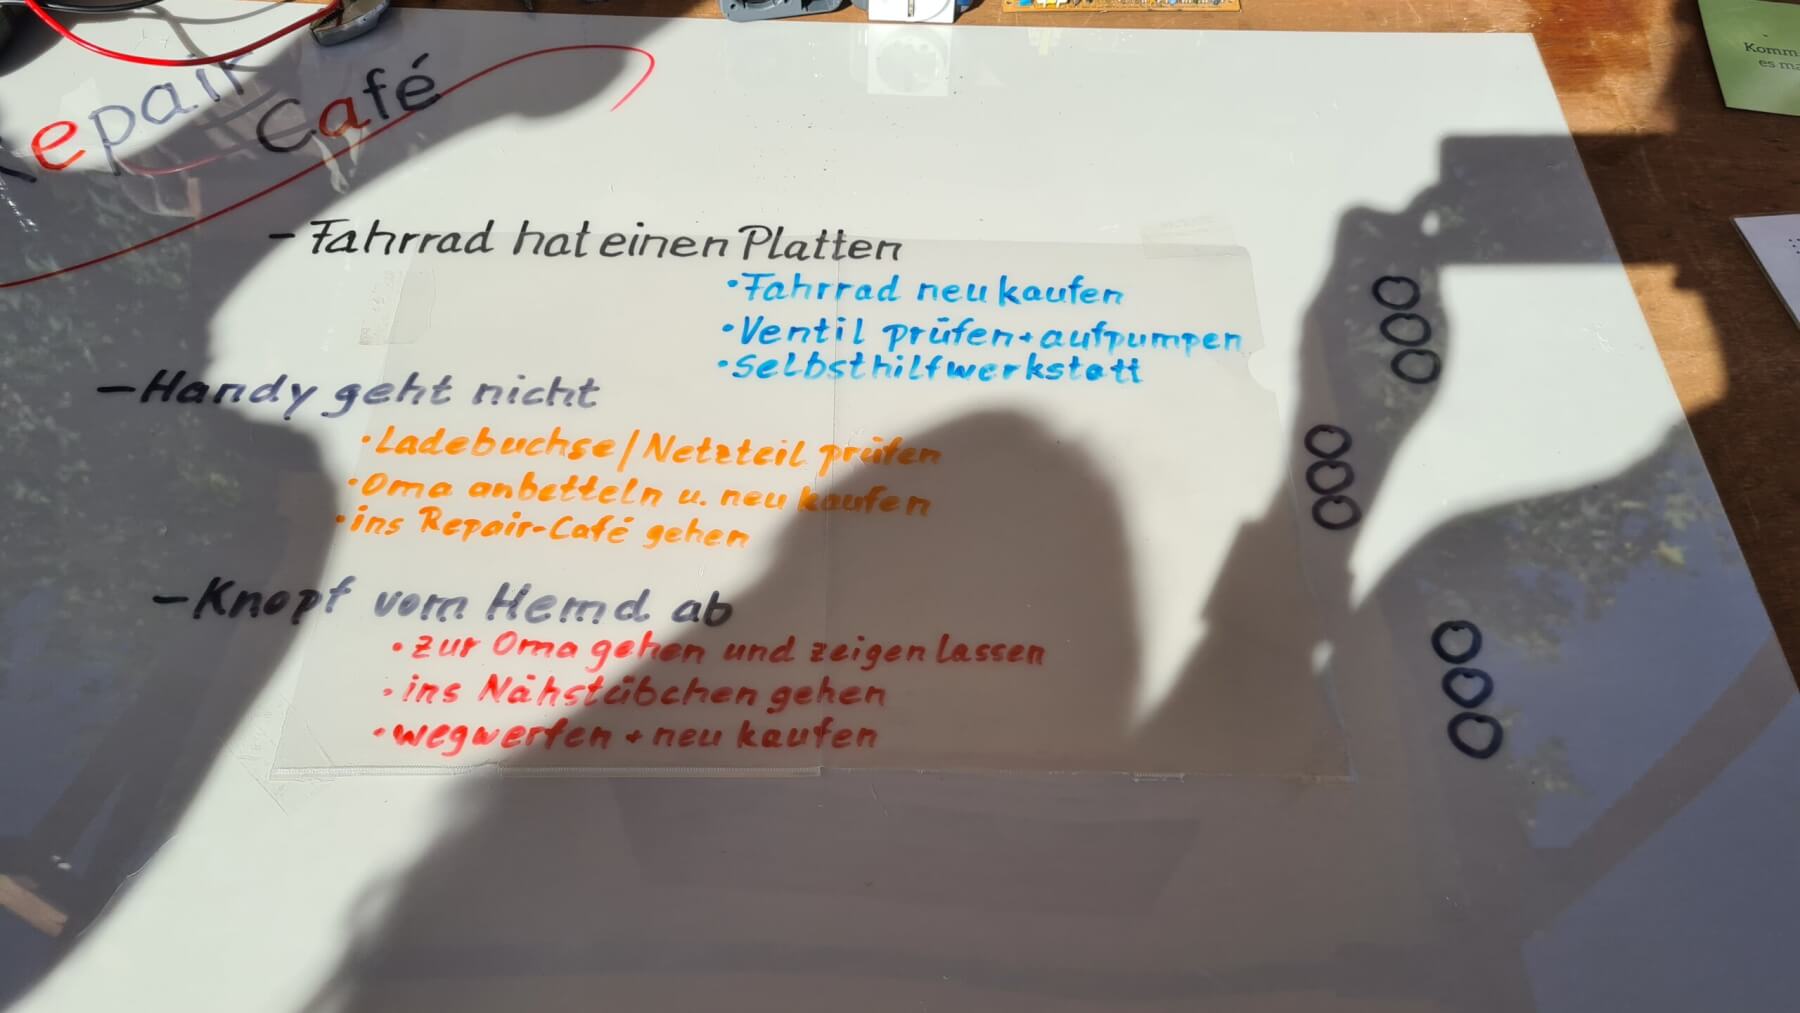 Repair
Café
- Fahrrad hat einen Platten
• Fahrrad neu kaufen
• Ventil prüfen + aufpumpen
• Selbsthilfwerkstatt
- Handy geht nicht
• Ladebuchse/Netzteil prüfen
• Oma anbetteln u. neu kaufen
• ins Repair-Café gehen
- Knopf vom Hemd ab
• zur Oma gehen und zeigen lassen
• ins Nähstübchen gehen
• wegwerfen + neu kaufen